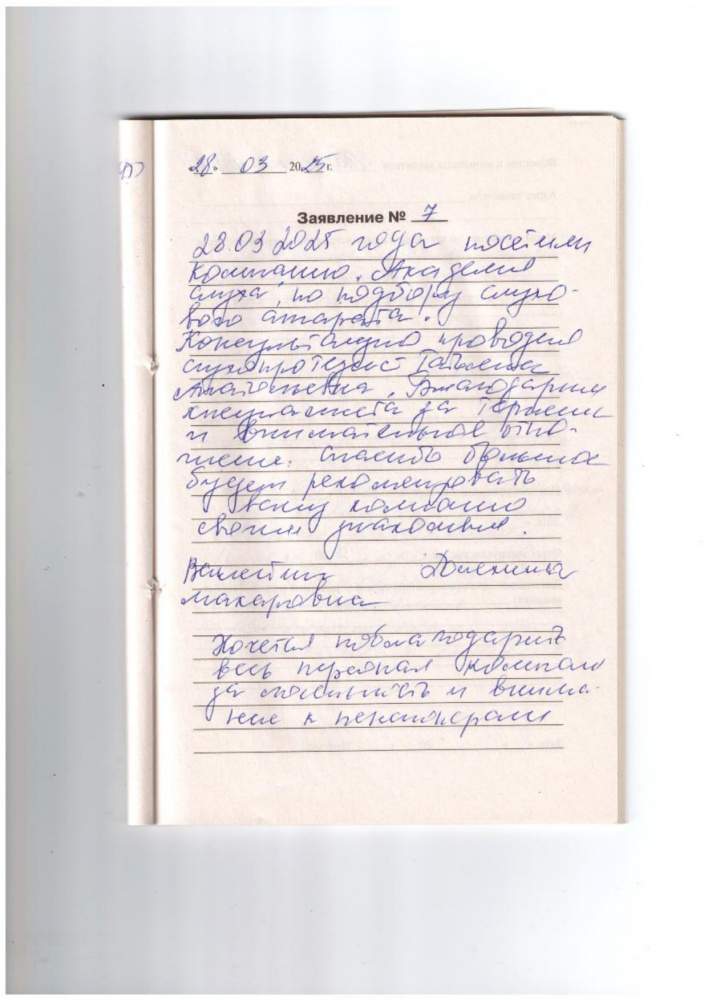 «28» 03 2025 г.
Заявление № 7
28.03 2025 года посетили
компанию „Академия
слуха", по подбору слухо-
вого аппарата.
Консультацию проводила
слухопротезист Татьяна
Анатольевна. Благодарим
специалиста за терпение
и внимательное отно-
шение. Спасибо большое
будем рекомендовать
вашу компанию
своим знакомым.
Валентина
Макаровна
Хочется поблагодарить
весь персонал компании
за лояльность и внима-
ние к пенсионерам